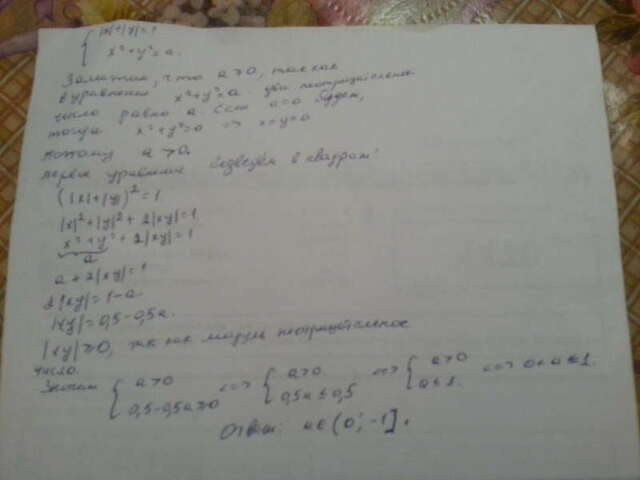 |x|+|y|=1
x²+y²=a.
Заметим, что a>0, так как
в уравнении x²+y²=a два неотрицательное
число равно a. Если a=0 будет,
тогда x²+y²=0 => x=y=0
поэтому a>0.
первое уравнение возведём в квадрат:
(|x|+|y|)²=1
|x|²+|y|²+2|xy|=1
x²+y²+2|xy|=1
a
a+2|xy|=1
2|xy|=1-a
|xy|=0,5-0,5a.
|xy|≥0, так как модуль неотрицательное
число.
Значит { a>0 <=> { a>0 <=> { a>0 <=> 0<a≤1.
0,5-0,5a≥0 0,5a≤0,5 a≤1.
Ответ: a∈(0; -1].